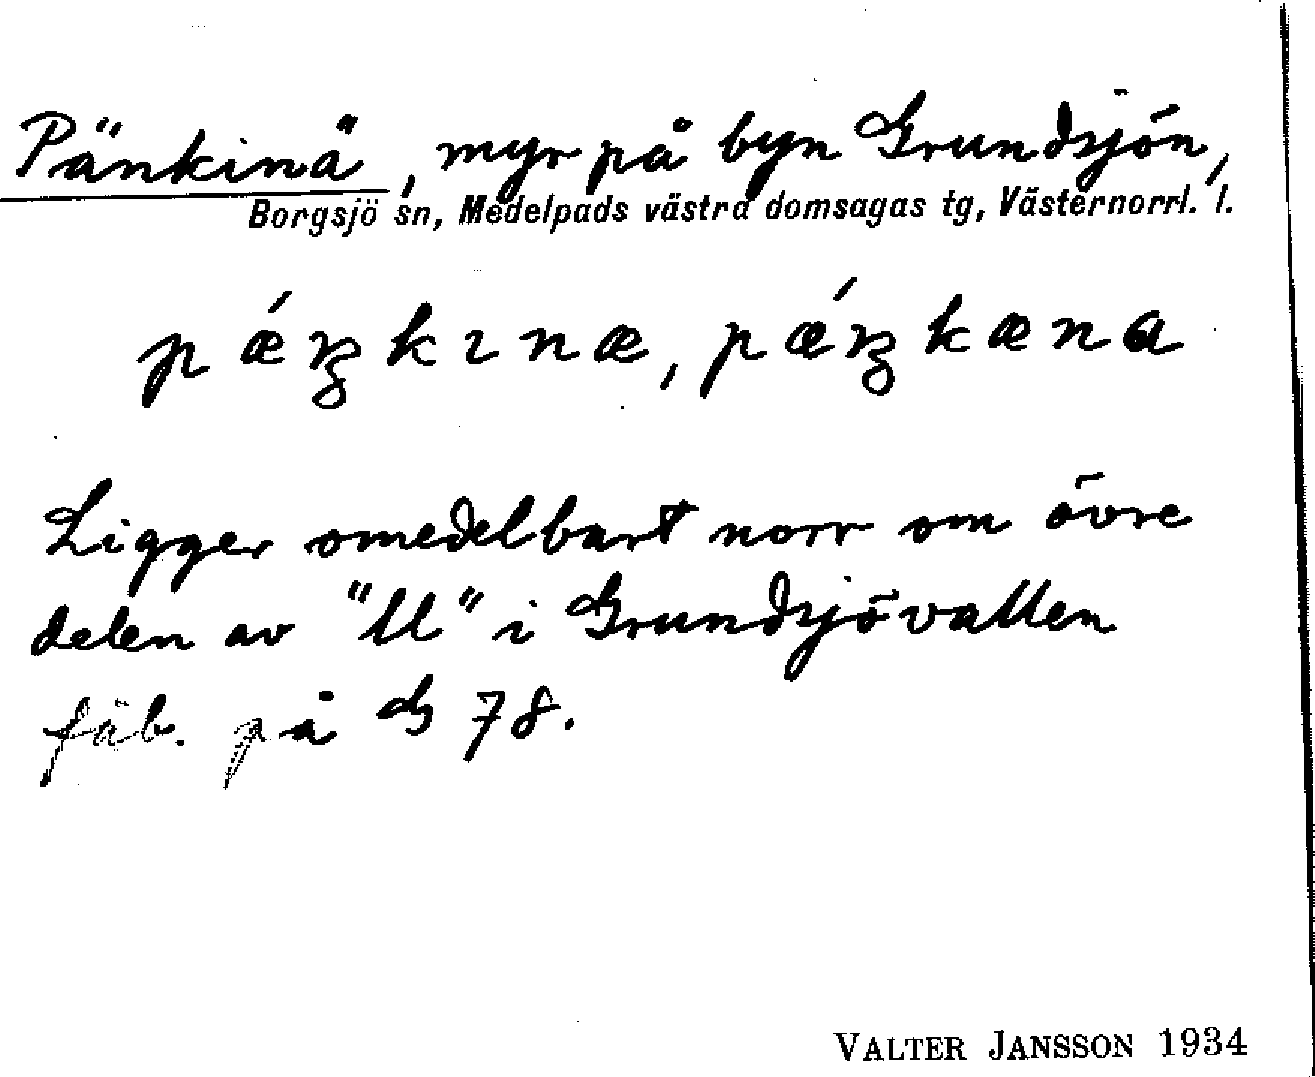 Pänkinä, myr på byn Grundsjön,
Borgsjö sn, Medelpads västra domsagas tg, Västernorrl. l.
pǽŋkınæ, pǽŋkæna
Ligger omedelbart norr om övre
delen av "ll" i Grundsjövallen
fäb. på G 78.
VALTER JANSSON 1934